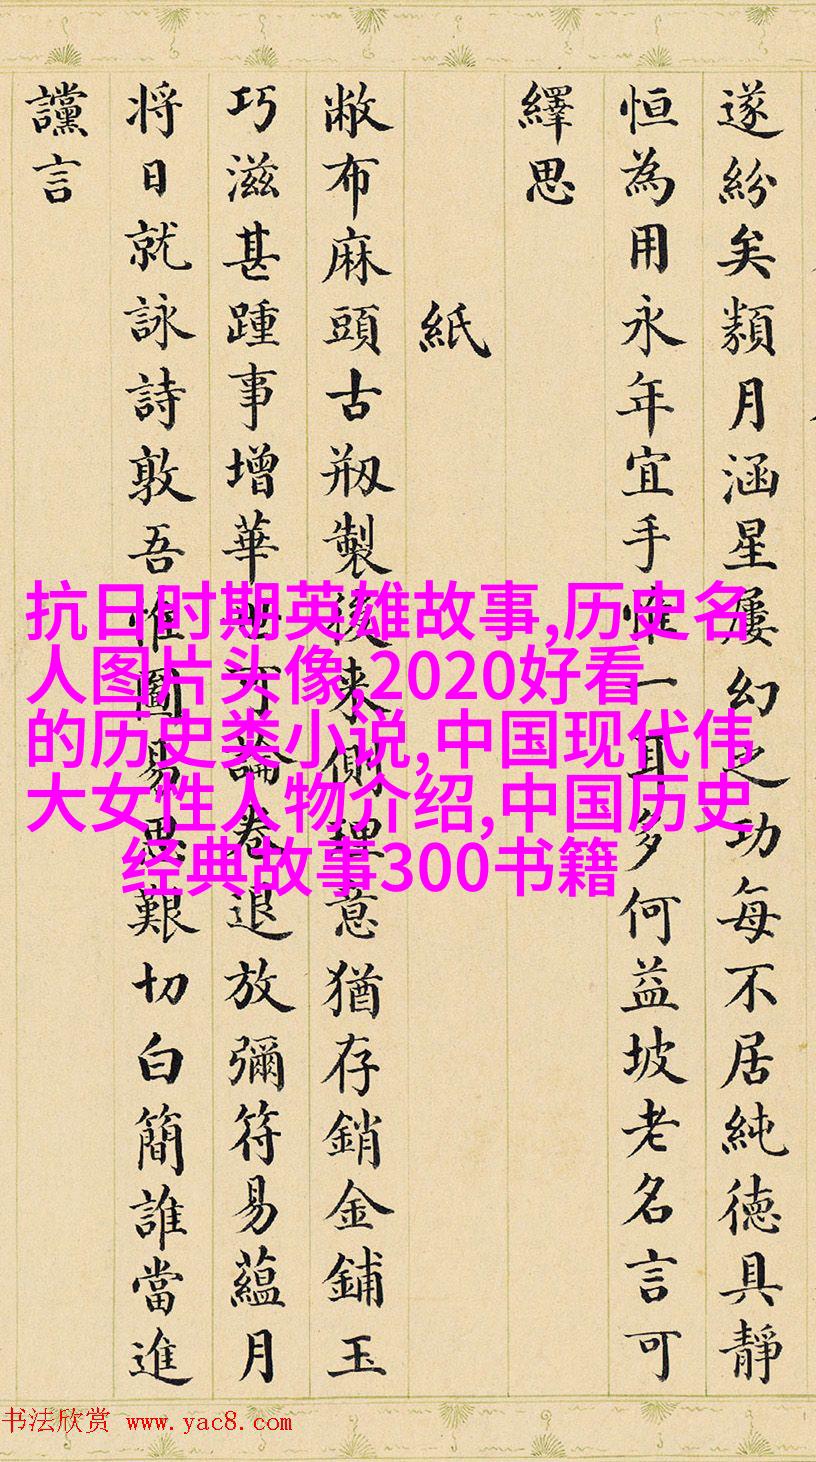 遂紛矣類月涵星屢幻之功每不居純德具靜
恒為用永年宜手惟一耳多何益坡老名言可
繹思
紙
敝布麻頭古剏製後来側理意猶存銷金鋪玉
巧滋甚踵事增華毋可論卷退放彌符易蘊月
将日就詠詩敦吾惟圖易思艱切白簡誰當進
讜言
抗日时期英雄故事,历史名
人图片头像,2020好看
的历史类小说,中国现代伟
大女性人物介绍,中国历史
经典故事300书籍
书法欣赏 www.yac8.com